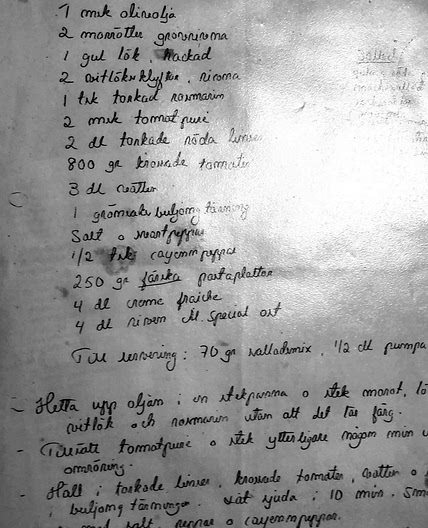 1 msk olivolja
2 morötter grovrivna
1 gul lök, hackad
2 vitlöksklyftor, rivna
1 tsk torkad rosmarin
2 msk tomatpuré
2 dl torkade röda linser
800 gr krossade tomater
3 dl vatten
1 grönsaksbuljong tärning
Salt o svartpeppar
1/2 tsk cayennpeppar
250 gr färska pastaplattor
4 dl creme fraiche
4 dl riven M. special ost
Till servering: 70 gr salladsmix, 1/2 dl pumpa
- Hetta upp oljan i en stekpanna o stek morot, lö
vitlök och rosmarin utan att det tar färg.
- Tillsätt tomatpuré o stek ytterligare någon min u
omröring.
- Häll i torkade linser, krossade tomater, vatten o
buljong tärningen. Låt sjuda i 10 min. Sm
med salt, peppar o cayennpeppar.